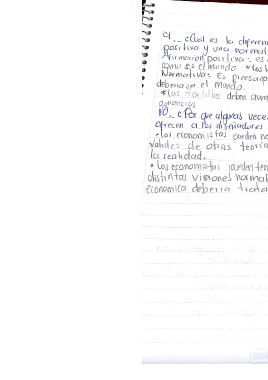 9.- ¿Cual es la diferen
positiva y una normat
Afirmacion positiva: es
como es el mundo *los
Normativa: Es prescrip
deberia ser el mundo.
*las deben aum
ganancias
10. ¿Por que algunas vece
ofrecen a los diseñadores
• los economistas pueden no
valides de otras teoria
la realidad.
• Los economistas pueden ten
distintas visiones normat
economica deberia tratar